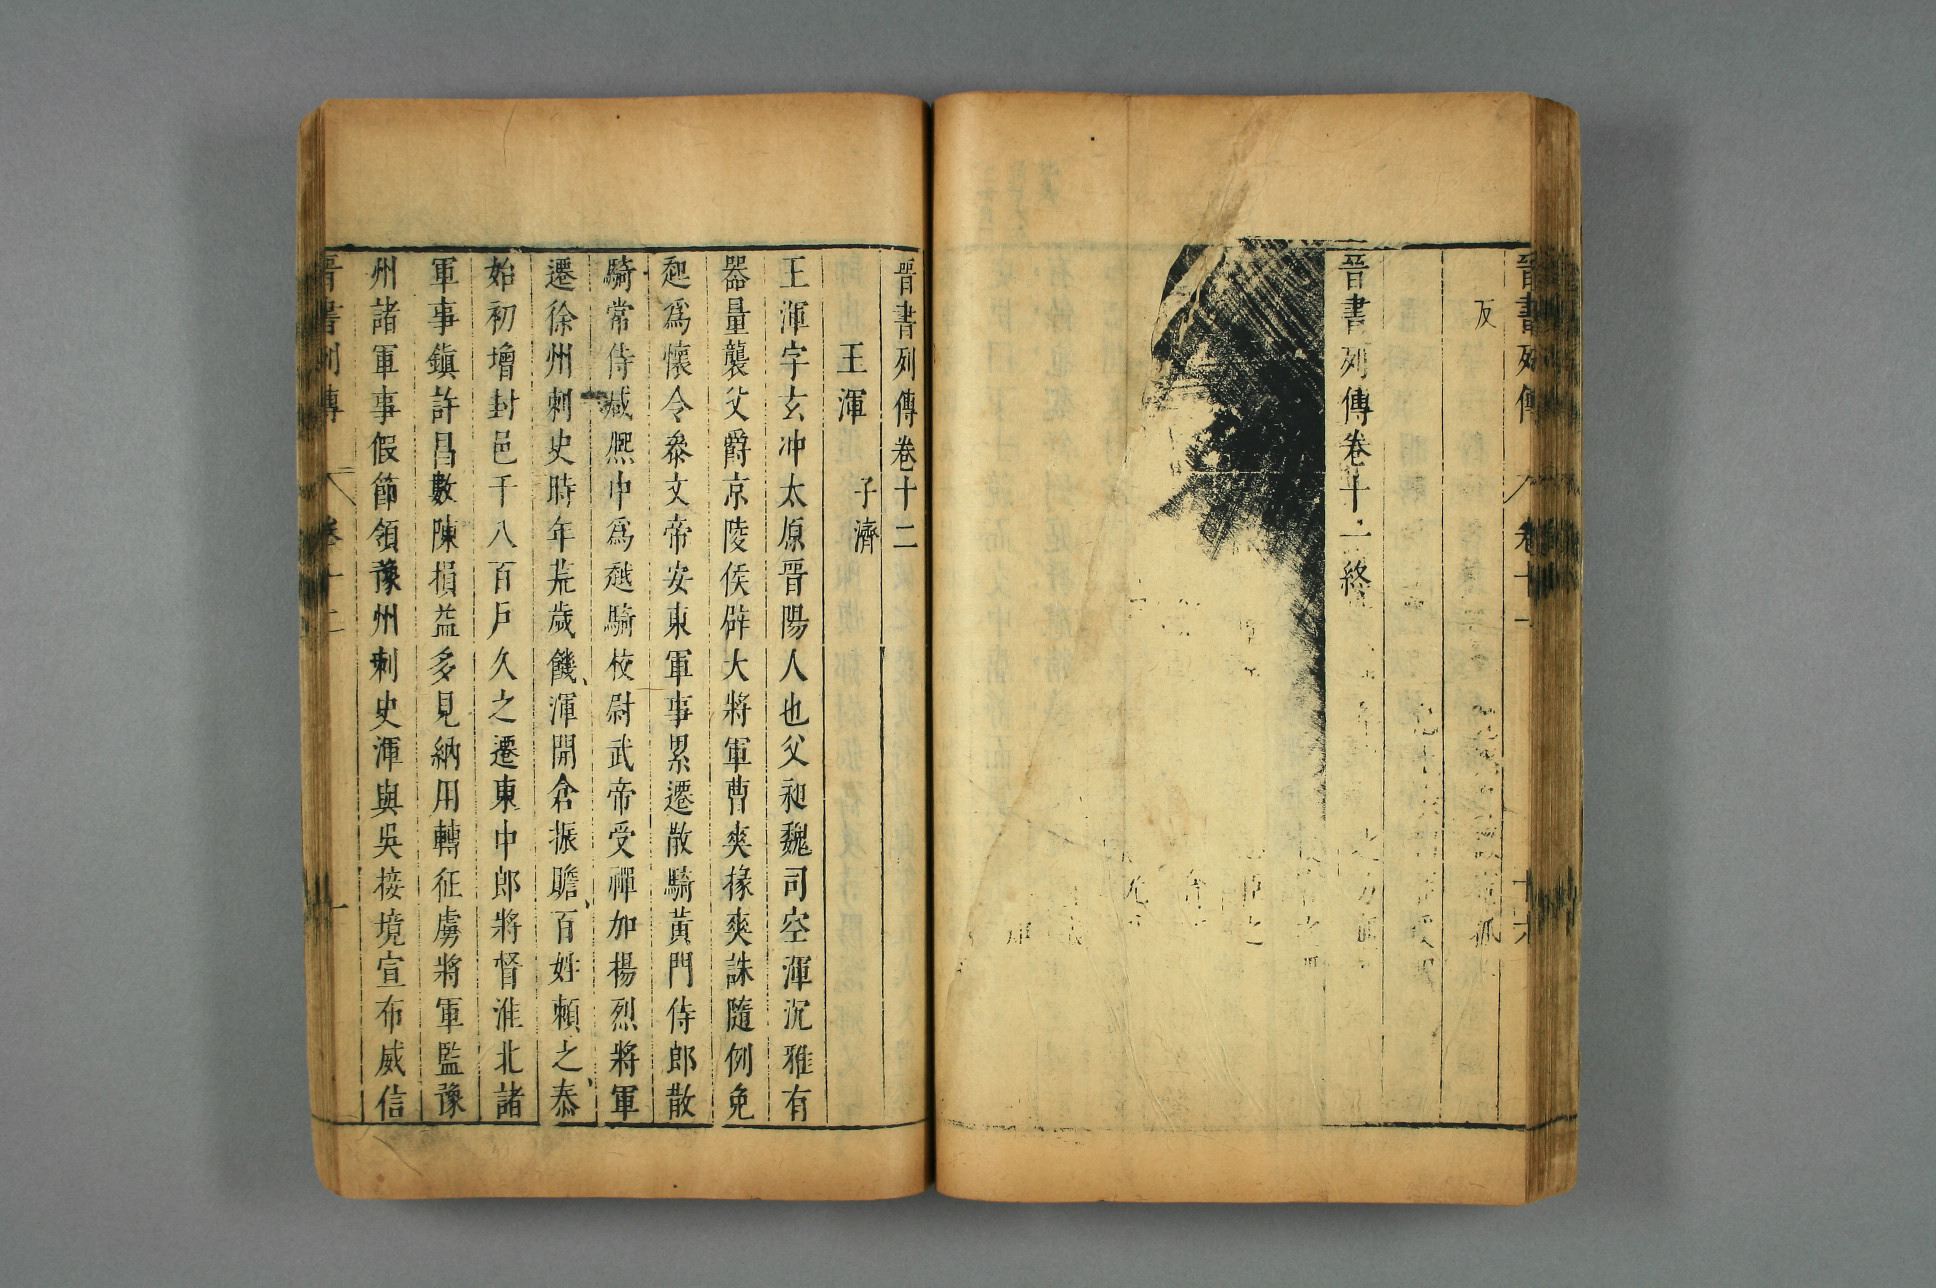 晉書列傳 卷十一
反
晉書列傳卷十一終
晉書列傳卷十二
王渾 子濟
王渾字玄冲太原晋陽人也父昶魏司空渾沉雅有
器量襲父爵京陵侯辟大將軍曹爽掾爽誅隨例免
起爲懷令叅文帝安東軍事累遷散騎黃門侍郎散
騎常侍咸熈中爲越騎校尉武帝受禪加楊烈將軍
遷徐州刺史時年荒歲饑渾開倉振贍百姓頼之泰
始初增封邑千八百戶久之遷東中郎將督淮北諸
軍事鎮許昌數陳損益多見納用轉征虜將軍監豫
州諸軍事假節領豫州刺史渾與吳接境宣布威信
晉書列傳 卷十二 一